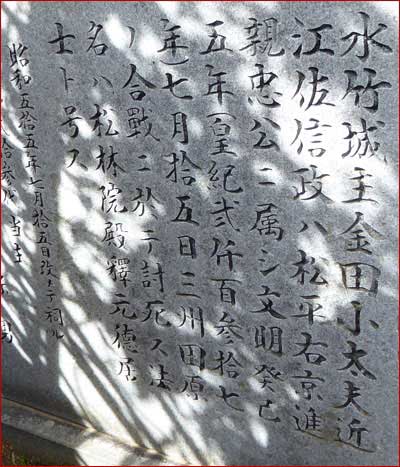 水竹城主金田小太夫近
江佐信政ハ松平右京進
親忠公ニ属シ文明癸已
五年(皇紀弐仟百参拾七
年)七月拾五日三州田原
ノ合戰ニ於テ討死ス法
名ハ松林院殿釋元德居
士ト号ス
昭和五拾五年七月拾五日改メテ祠ル